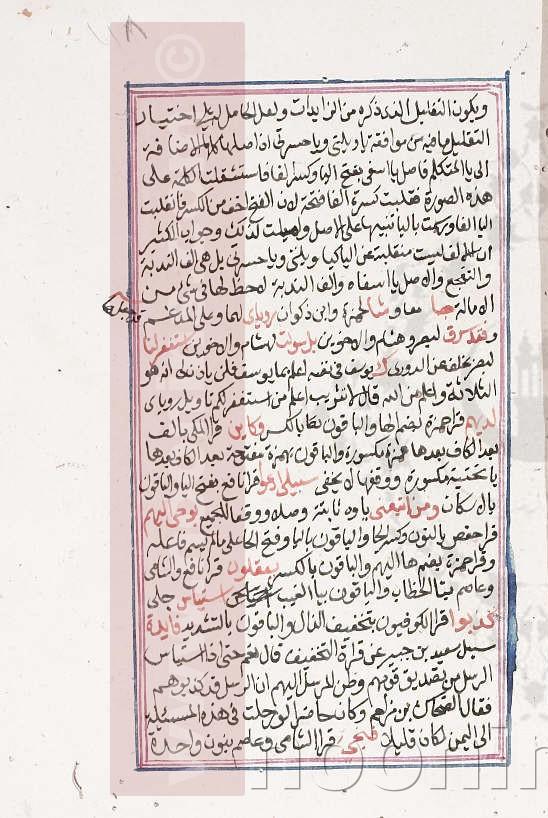 ويكون التقليل الذى ذكره من الزايدات ولعل الحامل له على اختيار
التقليل ما فيه من موافقة يا ويلتى ويا حسرتى اذ اصلها كلها الاضافة
الى يا المتكلم فاصل يا اسفى بفتح اليا وكسر الفا فاستثقلت الكلمة على
هذه الصورة فقلبت كسرة الفا فتحة لان الفتح اخف من الكسر فانقلبت
اليا الفا ورسمت باليا تنبيها على الاصل وامليت لذلك وجواب الكثير
ان الالف ليست منقلبة عن اليا كيا ويلتى ويا حسرتى بل هى الف الندبة
والتفجع والاصل يا اسفاه والف الندبة لا حظ لها فى شئ من
الامالة معا وشا لحمزة وابن ذكوان رؤياى لهما وعلى المدغم
فقد سرق لبصر وهشام والاخوين بل سولت لهشام والاخوين استغفر لنا
لبصر بخلف عن الدورى ك يوسف فى نفسه اعلم بما يوسف فلن ياذن لى انه هو
الثلاثة واعلم من الله قال لا تثريب اعلم من استغفر لكم تاويل روياى
لديهم قرا حمزة بضم الها والباقون بالكسر وكاين قرا المكى بالف
بعد الكاف بعدها همزة مكسورة والباقون بهمزة مفتوحة بعد الكاف بعدها
يا تحتية مكسورة ووقفها لا يخفى سبيلى ادعوا قرا نافع بفتح اليا والباقون
بالاسكان ومن اتبعنى ياوه ثابتة وصلا ووقفا للجميع نوحى اليهم
قرا حفص بالنون وكسر الحا والباقون باليا وفتح الحا على ما لم يسم فاعله
وقرا حمزة بضم ها اليهم والباقون بالكسر يعقلون قرا نافع والشامى
وعاصم بتا الخطاب والباقون بيا الغيب استياس جلى
كذبوا قرا الكوفيون بتخفيف الذال والباقون بالتشديد فايدة
سيل سعيد بن جبير عن قراة التخفيف قال نعم حتى اذا استياس
الرسل من تصديق قومهم وظن المرسل اليهم ان الرسل قد كذبوهم
فقال الضحاك بن مزاحم وكان حاضرا لو رحلت فى هذه المسئلة
الى اليمن لكان قليلا فنجى قرا الشامى وعاصم بنون واحدة
noorlin